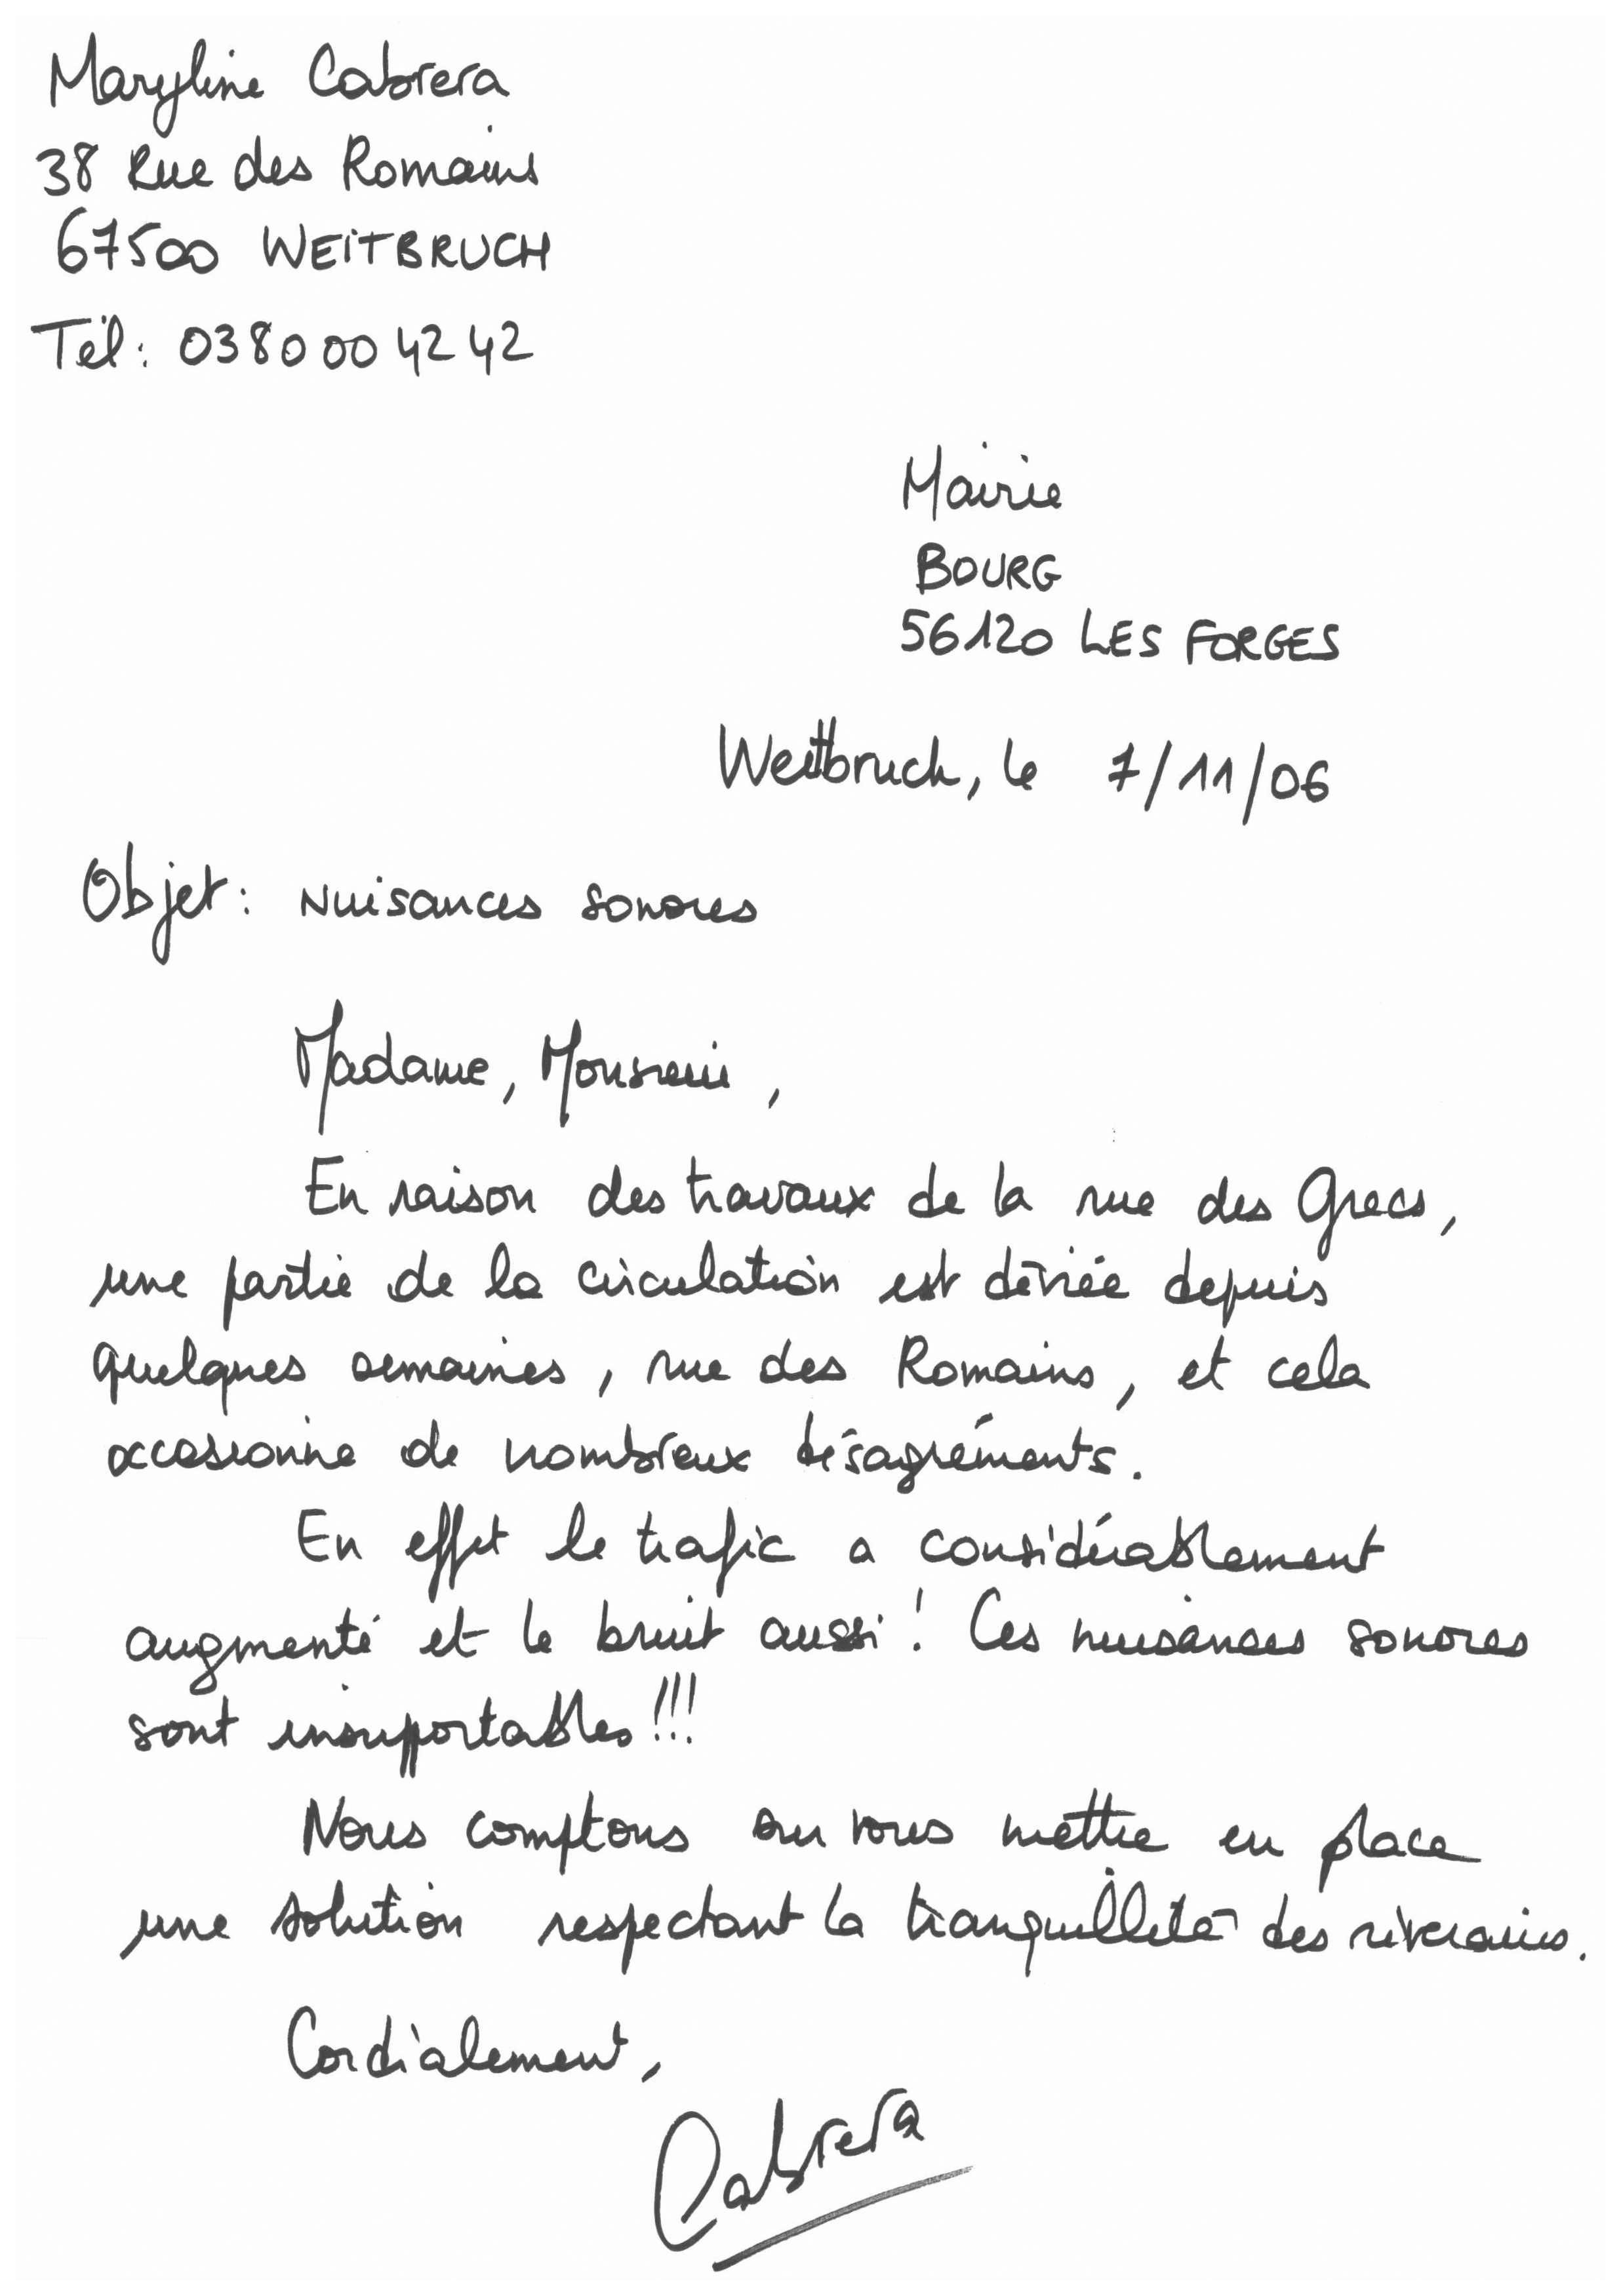 Maryline Cabrera
38 Rue des Romains
67500 WEITBRUCH
Tél : 03 80 00 42 42
Mairie
BOURG
56120 LES FORGES
Weitbruch, le 7/11/06
Objet : Nuisances sonores
Madame, Monsieur,
En raison des travaux de la rue des Grecs,
une partie de la circulation est déviée depuis
quelques semaines, rue des Romains, et cela
occasionne de nombreux désagréments.
En effet le trafic a considérablement
augmenté et le bruit aussi ! Ces nuisances sonores
sont insupportables !!!
Nous comptons sur vous mettre en place
une solution respectant la tranquilleté des riverains.
Cordialement,
Cabrera